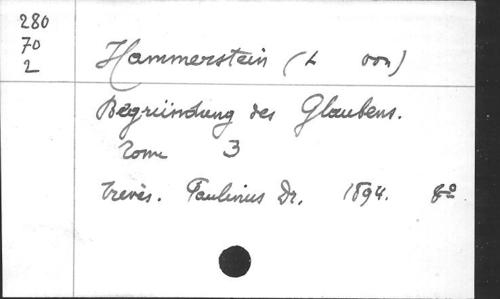 280
70
2
Hammerstein (L von)
Begründung des Glaubens.
Tome 3
Treves. Paulinus Dr. 1894. 8º